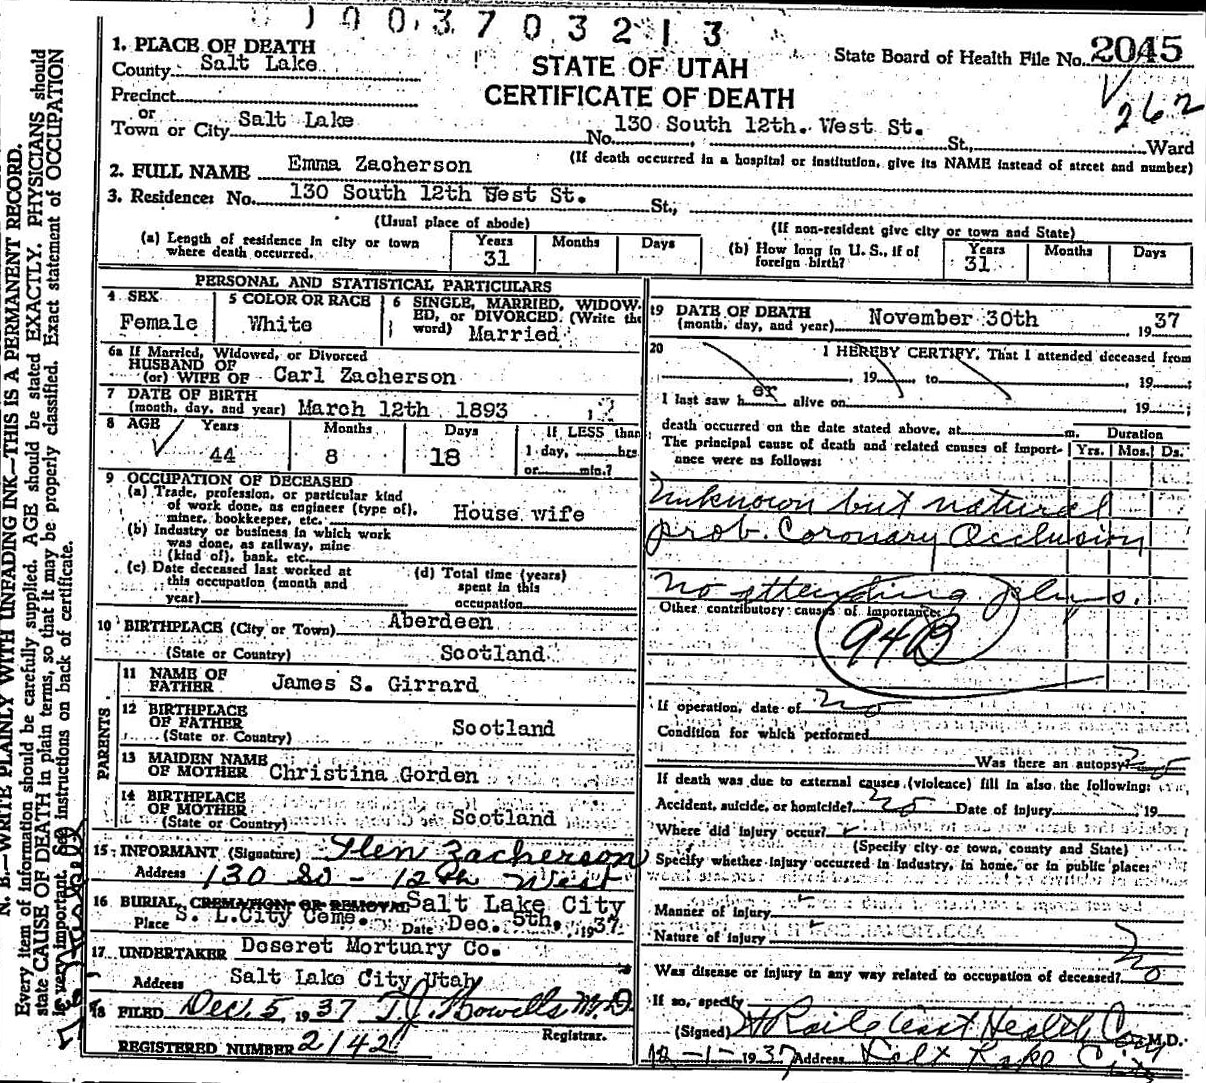 1003703213
1. PLACE OF DEATH
County Salt Lake
Precinct
or
Town or City Salt Lake
STATE OF UTAH
CERTIFICATE OF DEATH
State Board of Health File No. 2045
262
No. 130 South 12th. West St. St., Ward
(If death occurred in a hospital or institution, give its NAME instead of street and number)
2. FULL NAME Emma Zacherson
3. Residence: No. 130 South 12th West St. St.,
(Usual place of abode) (If non-resident give city or town and State)
(a) Length of residence in city or town where death occurred. Years 31 Months Days
(b) How long in U. S., if of foreign birth? Years 31 Months Days
PERSONAL AND STATISTICAL PARTICULARS
4 SEX Female
5 COLOR OR RACE White
6 SINGLE, MARRIED, WIDOWED, or DIVORCED. (Write the word) Married
6a If Married, Widowed, or Divorced
HUSBAND OF
(or) WIFE OF Carl Zacherson
7 DATE OF BIRTH
(month, day, and year) March 12th 1893 , ?
8 AGE Years 44 Months 8 Days 18 If LESS than 1 day, hrs. or min.?
9 OCCUPATION OF DECEASED
(a) Trade, profession, or particular kind of work done, as engineer (type of), miner, bookkeeper, etc. House wife
(b) Industry or business in which work was done, as railway, mine (kind of), bank, etc.
(c) Date deceased last worked at this occupation (month and year)
(d) Total time (years) spent in this occupation
10 BIRTHPLACE (City or Town) Aberdeen
(State or Country) Scotland
PARENTS
11 NAME OF FATHER James S. Girrard
12 BIRTHPLACE OF FATHER
(State or Country) Scotland
13 MAIDEN NAME OF MOTHER Christina Gorden
14 BIRTHPLACE OF MOTHER
(State or Country) Scotland
15 INFORMANT (Signature) Glen Zacherson
Address 130 So - 12th West
16 BURIAL, CREMATION OR REMOVAL Salt Lake City
Place S. L.City Ceme. Date Dec. 5th. 1937
17 UNDERTAKER Deseret Mortuary Co.
Address Salt Lake City Utah
18 FILED Dec. 5 1937 T.J. Howells M.D.
Registrar.
REGISTERED NUMBER 2142
19 DATE OF DEATH
(month, day, and year) November 30th 1937
20 I HEREBY CERTIFY, That I attended deceased from
, 19 , to , 19 ;
I last saw her alive on , 19 ;
death occurred on the date stated above, at m.
The principal cause of death and related causes of importance were as follows:
Duration
Yrs. Mos. Ds.
Unknown but natural
prob. Coronary Occlusion
No attending phys.
Other contributory causes of importance:
94B
If operation, date of no
Condition for which performed
Was there an autopsy? no
If death was due to external causes (violence) fill in also the following:
Accident, suicide, or homicide? no Date of injury 19
Where did injury occur?
(Specify city or town, county and State)
Specify whether injury occurred in industry, in home, or in public place:
Manner of injury
Nature of injury
Was disease or injury in any way related to occupation of deceased? no
If so, specify
(Signed) Health M.D.
12-1-1937 Address Salt Lake City
N. B.—WRITE PLAINLY WITH UNFADING INK—THIS IS A PERMANENT RECORD.
Every item of information should be carefully supplied. AGE should be stated EXACTLY. PHYSICIANS should
state CAUSE OF DEATH in plain terms, so that it may be properly classified. Exact statement of OCCUPATION
is very important. See instructions on back of certificate.